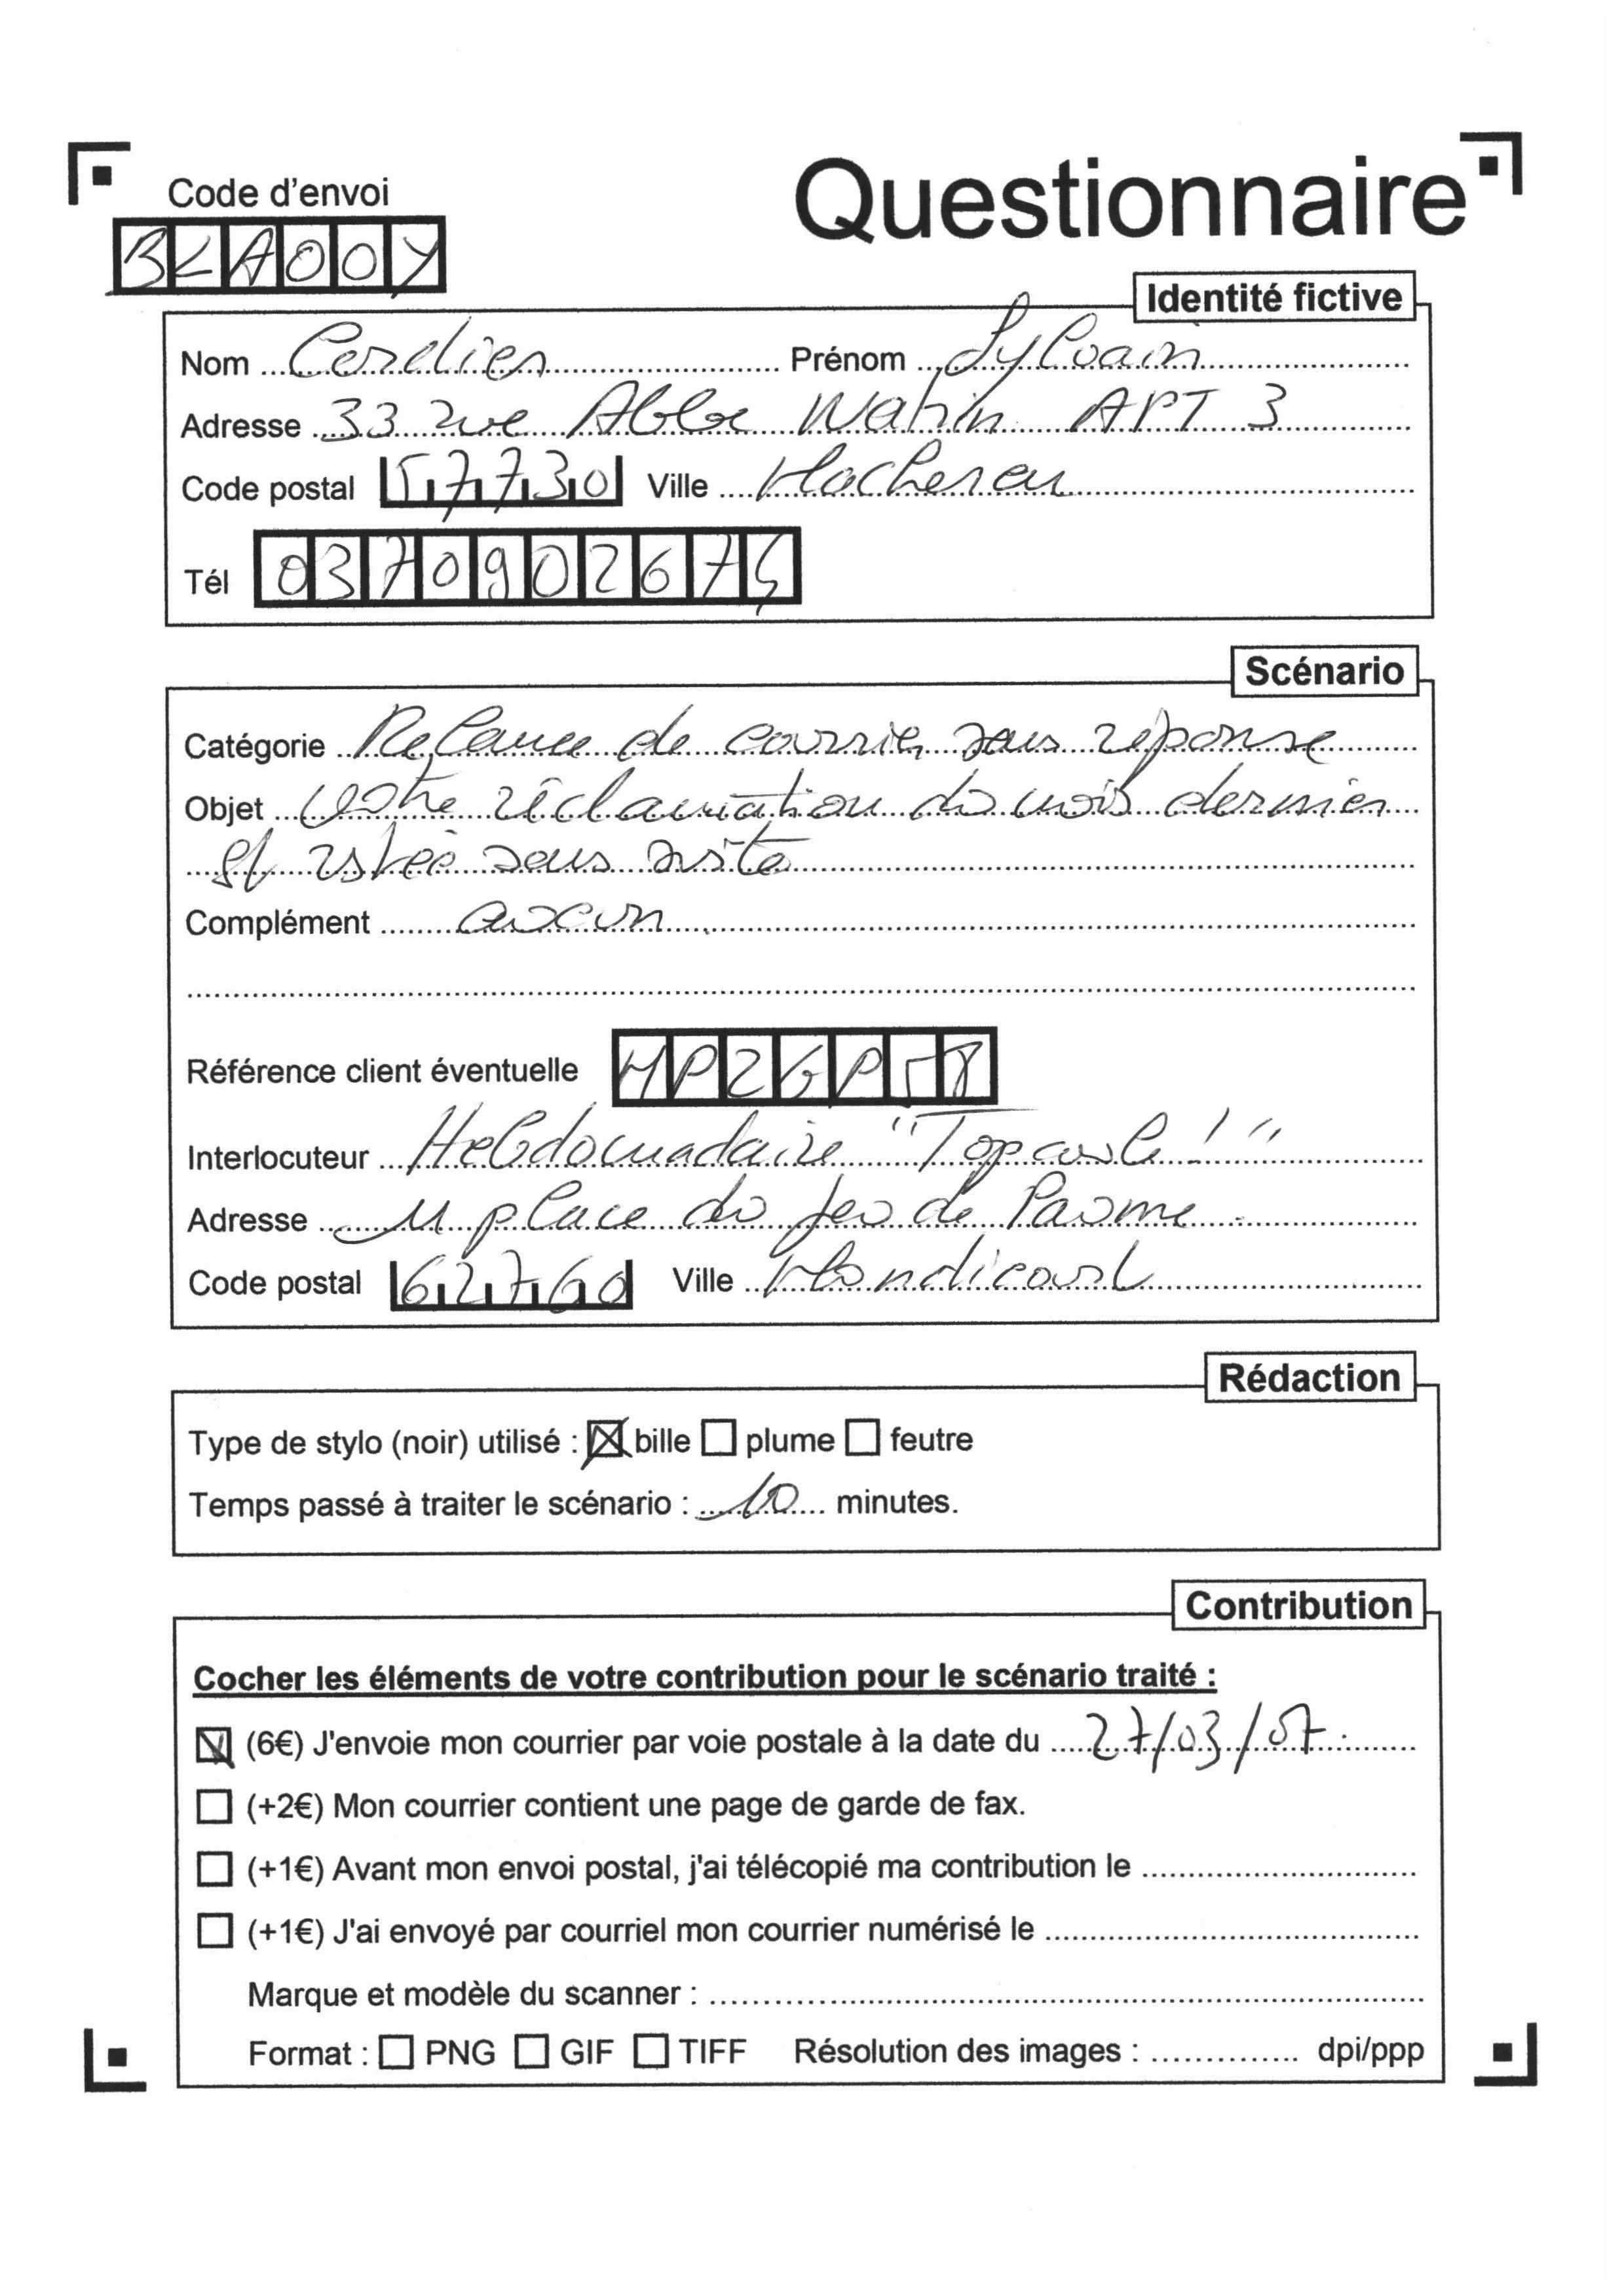 Questionnaire
Code d'envoi
BKA00Y
Identité fictive
Nom Cordier Prénom Sylvain
Adresse 33 rue Abbe Watrin APT 3
Code postal 57730 Ville
Tél 0370902675
Scénario
Catégorie Relance de courrier sans réponse
Objet votre réclamation du mois dernier
sans suite
Complément aucun
Référence client éventuelle
Interlocuteur Hebdomadaire "Top !"
Adresse 11 place du Jeu de Paume
Code postal 62760 Ville
Rédaction
Type de stylo (noir) utilisé : bille plume feutre
Temps passé à traiter le scénario : 10 minutes.
Contribution
Cocher les éléments de votre contribution pour le scénario traité :
(6€) J'envoie mon courrier par voie postale à la date du 27/03/07.
(+2€) Mon courrier contient une page de garde de fax.
(+1€) Avant mon envoi postal, j'ai télécopié ma contribution le
(+1€) J'ai envoyé par courriel mon courrier numérisé le
Marque et modèle du scanner :
Format : PNG GIF TIFF Résolution des images : dpi/ppp